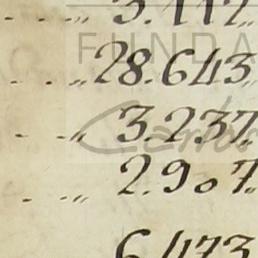 3.112.
28.643.
3.237.
2.907.
6.473
FUNDA
Carlos